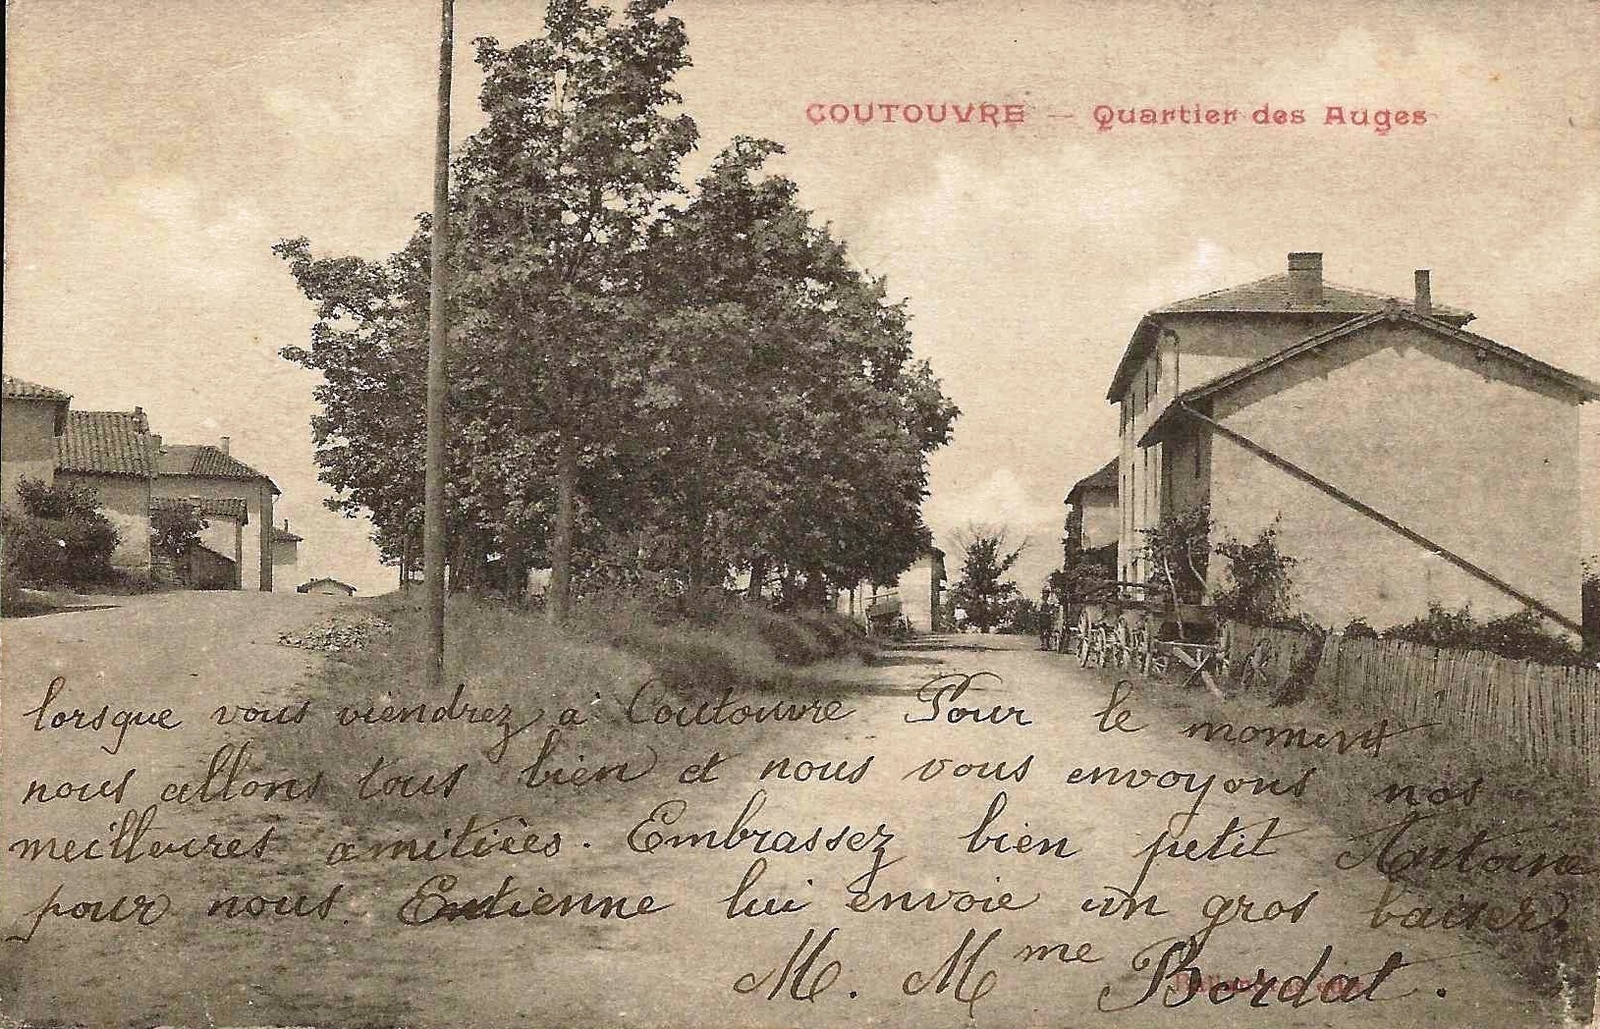 COUTOUVRE — Quartier des Auges
lorsque vous viendrez a Coutouvre Pour le moment
nous allons tous bien et nous vous envoyons nos
meilleures amitiées. Embrassez bien petit Antoine
pour nous. Entienne lui envoie un gros baiser.
M. Mme Bordat.